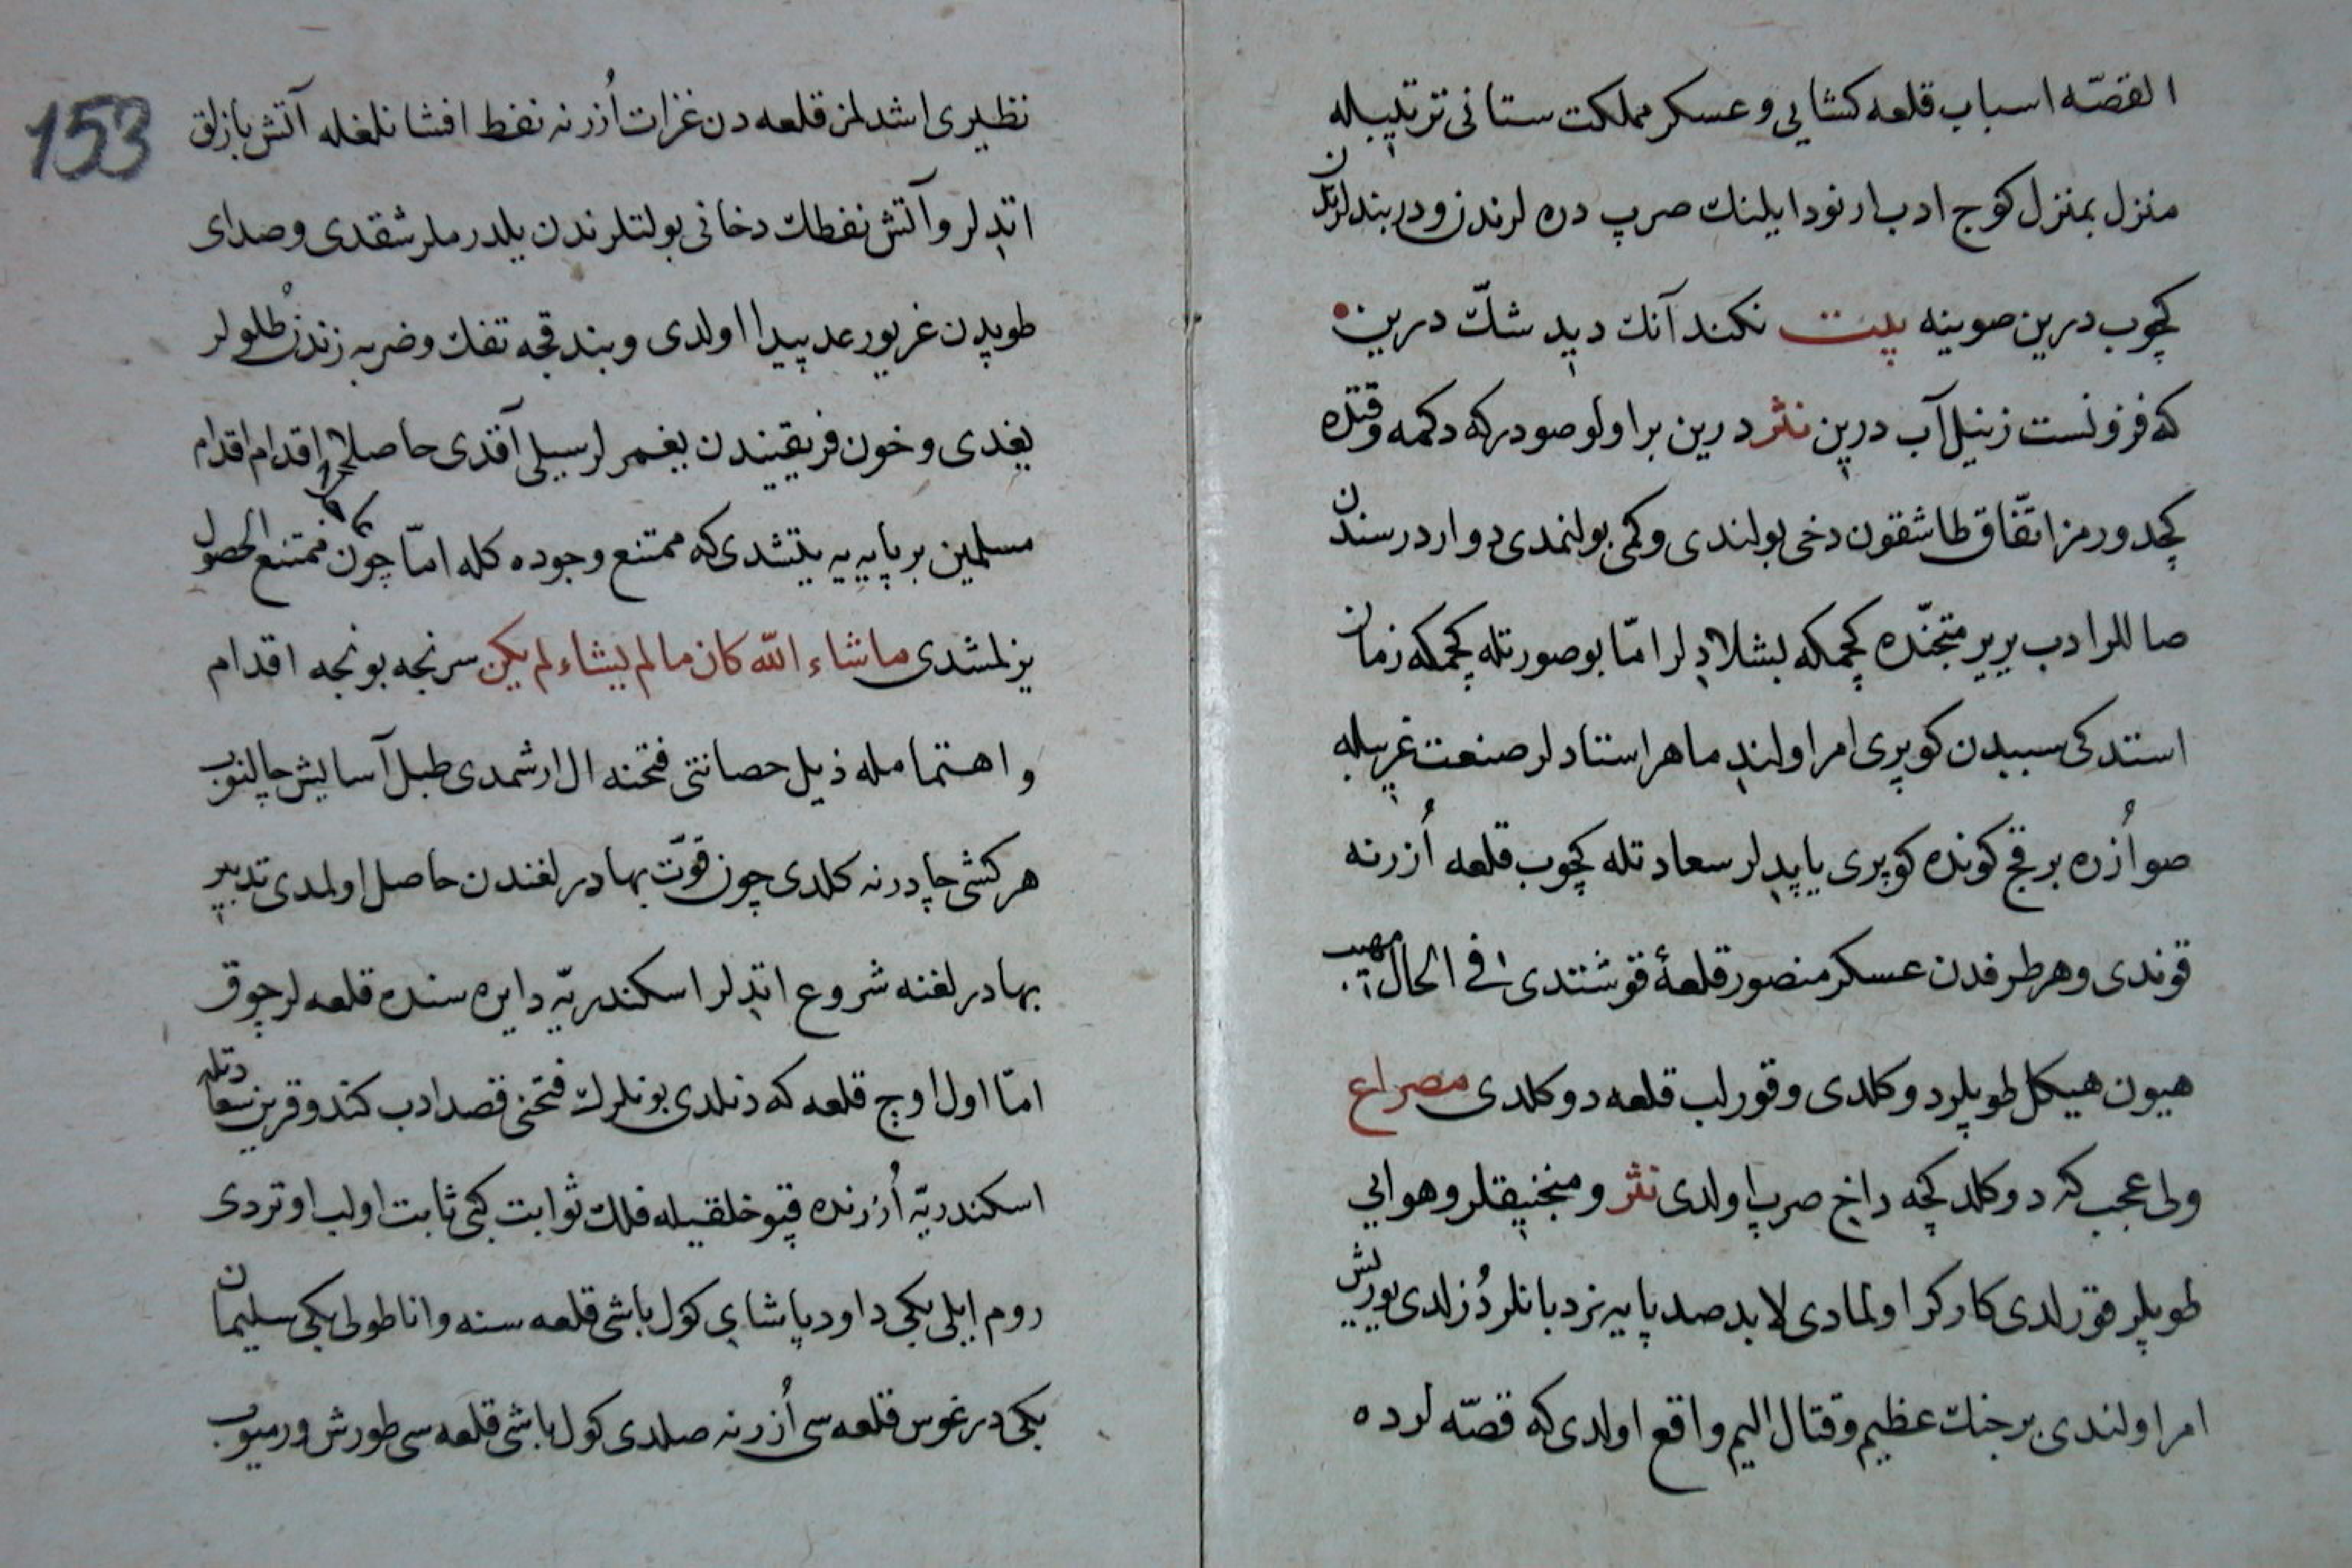 القصّه اسباب قلعه كشایی و عسكر مملكت ستانی ترتیبیله
منزل بمنزل كوج ادب ارنود ایلینك صرپ دره لرندن و دربندلرندن
كچوب درین صوینه بیت نكند آنك دید شكّ درین
كه فزونست زنیل آب درین نثر درین بر اولو صودر كه دكمه وقتده
كچد ویرمز اتّفاق طاشقون دخی بولندی و كمی بولنمدی دواردرسندن
صاللر ادب یر یر متجنّده كچمكه بشلادلر امّا بو صورتله كچمكه زمان
استدكی سببدن كوپری امر اولند ماهر استادلر صنعت غریبله
صو اُزره بر قچ كونده كوپری یاپدلر سعادتله كچوب قلعه اُزرنه
قوندی و هر طرفدن عسكر منصور قلعهٔ قوشتدی فی الحال مهیب
هیون هیكل طوپلر دوكلدی و قورلب قلعه دوكلدی مصراع
ولی عجب كه دوكلد كچه داخ صرپ اولدی نثر و منجنیقلر و هوایی
طوپلر قورلدی كاركر اولمادی لابد صد پایه نردبانلر دُزلدی یورلش
امر اولندی بر جنك عظیم و قتال الیم واقع اولدی كه قصّه لرده
153
نظیری اشدلمز قلعه دن غزات اُزرنه نفط افشانلغله آتش بازلق
اتدلر و آتش نفطك دخانی بولتلرندن یلدرملر شقدی و صدای
طوپدن غریو رعد پیدا اولدی و بندقچه تفك و ضربه زندن طلولر
یغدی و خون فریقیندن یغمر لر سیلی آقدی حاصلا اقدام اقدام
مسلمین بر پایه یه یتشدی كه ممتنع وجوده كله امّا چون ممتنع الحصول
یزلمشدی ماشاء الله كان مالم یشاء لم یكن سرنجه بونجه اقدام
و اهتمامله ذیل حصانتی فتحنه ال ارشمدی طبل آسایش چالنوب
هر كشی چادرنه كلدی چون قوّت بهادرلغندن حاصل اولمدی تدبیر
بهادرلغنه شروع اتدلر اسكندریّه دایره سنده قلعه لر چوق
امّا اول اوچ قلعه كه دنلدی بونلرك فتحنی قصد ادب كندو قرین سعادتله
اسكندریّه اُزرنده قپو خلقیله فلك ثوابت كبی ثابت اولب اوتردی
روم ایلی بكی داود پاشای كول باشی قلعه سنه و اناطولی بكی سلیمان
بكی درغوس قلعه سی اُزرنه صلدی كول باشی قلعه سی طورش ورمیوب